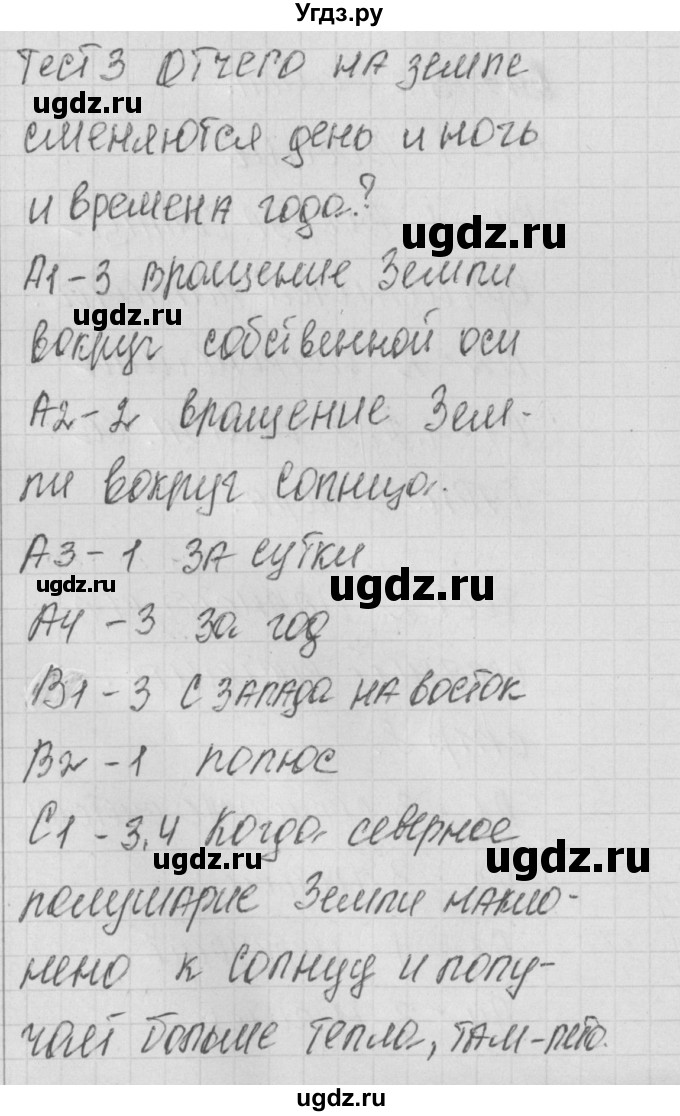 Угдз.ру
Тест 3 Отчего на земле
ugdz.ru
сменяются день и ночь
и времена года?
ugdz.ru
А1-3 вращение Земли
ugdz.ru
вокруг собственной оси
А2-2 вращение Зем-
ли вокруг Солнца.
А3-1 за сутки
ugdz.ru
ugdz.ru
А4-3 за год
В1-3 с запада на восток
В2-1 полюс
С1-3,4 Когда северное
ugdz.ru
ugdz.ru
полушарие Земли накло-
нено к Солнцу и полу-
чает больше тепла, там-лето.
ugdz.ru